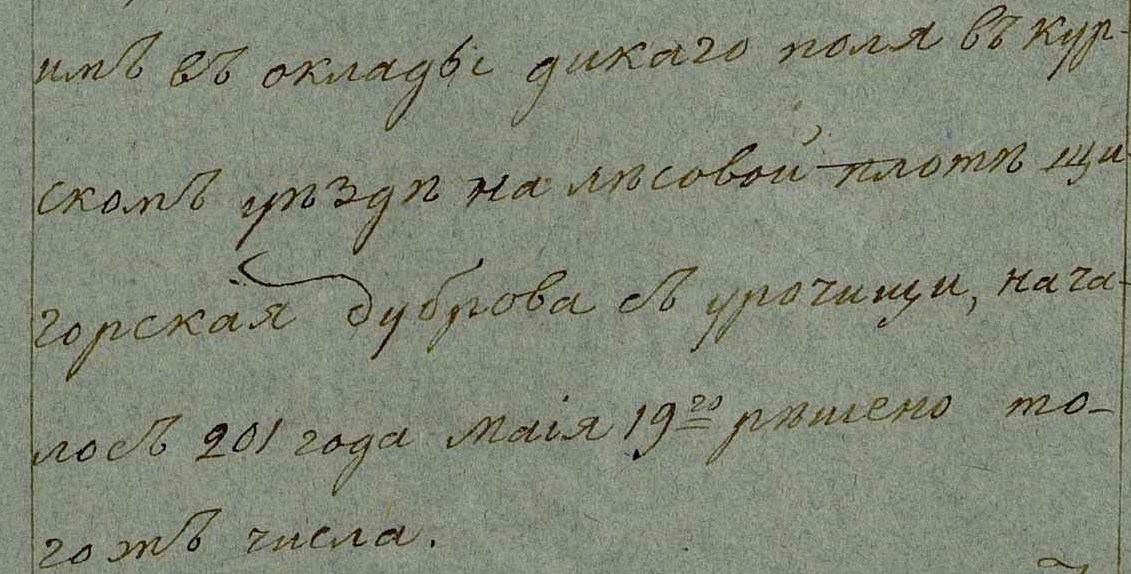 имъ въ оклады дикаго поля въ кур-
скомъ уѣздѣ на лѣсовой плотѣ щи-
горская дуброва съ урочищи, нача-
лось 201 года маія 19го рѣшено то-
гожъ числа.